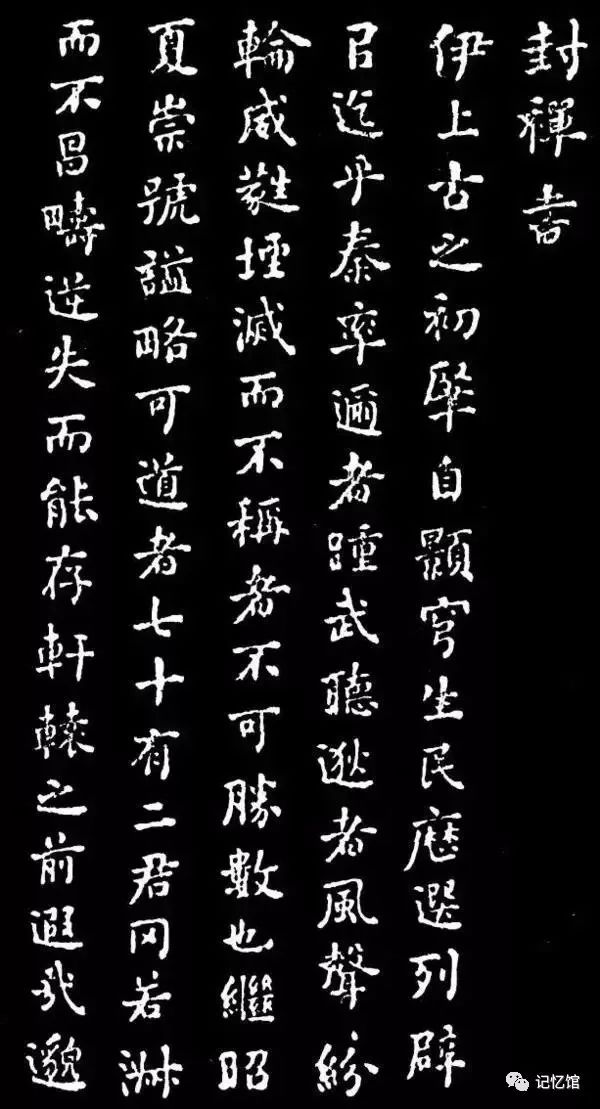 封禪書
伊上古之初肇自顥穹生民歷選列辟
㠯迄乎秦率邇者踵武聽逖者風聲紛
輪威蕤堙滅而不稱者不可勝數也繼昭
夏崇號謚略可道者七十有二君罔若淑
而不昌疇逆失而能存軒轅之前遐哉邈
记忆馆